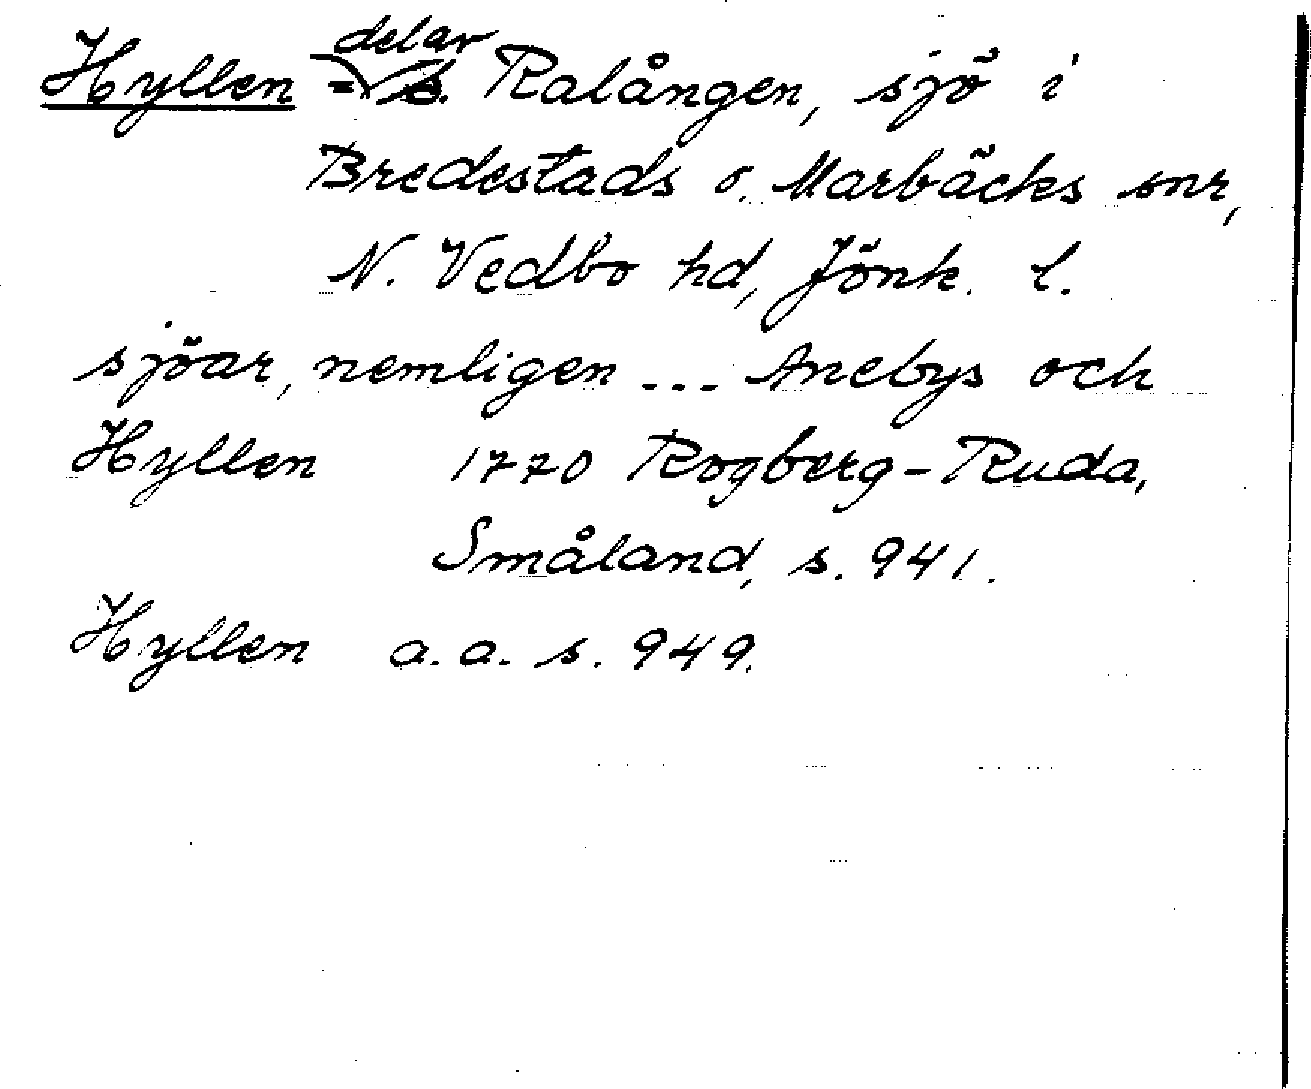 Hyllen = delar Ralången, sjö i
Bredestads o. Marbäcks snr,
N. Vedbo hd, Jönk. l.
sjöar, nemligen ... Anebys och
Hyllen 1770 Rogberg-Ruda,
Småland, s. 941.
Hyllen a.a. s. 949.